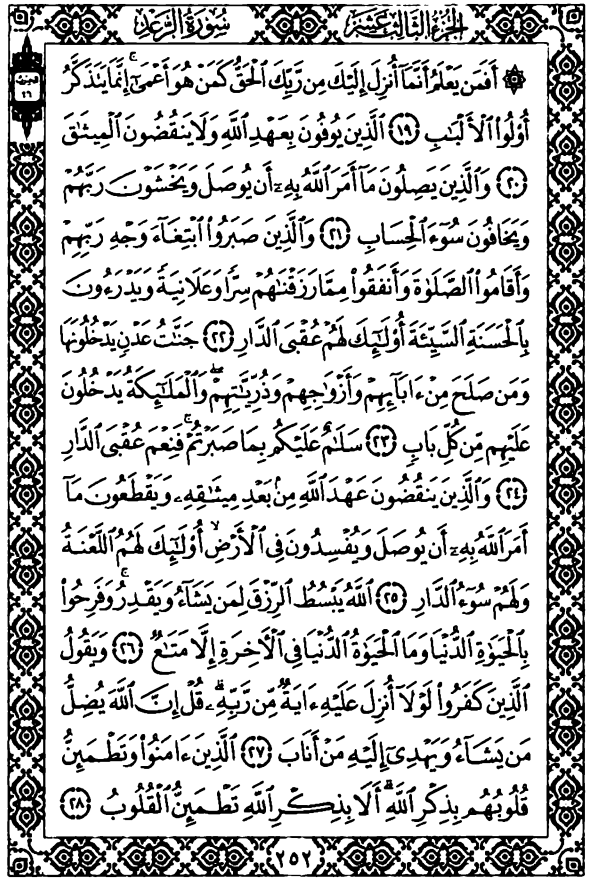 سُورَةُ الرَّعْدِ
الجُزْءُ الثَّالِثَ عَشَرَ
۞ أَفَمَن يَعْلَمُ أَنَّمَآ أُنزِلَ إِلَيْكَ مِن رَّبِّكَ ٱلْحَقُّ كَمَنْ هُوَ أَعْمَىٰٓ ۚ إِنَّمَا يَتَذَكَّرُ
أُو۟لُوا۟ ٱلْأَلْبَٰبِ ﴿١٩﴾ ٱلَّذِينَ يُوفُونَ بِعَهْدِ ٱللَّهِ وَلَا يَنقُضُونَ ٱلْمِيثَٰقَ
﴿٢٠﴾ وَٱلَّذِينَ يَصِلُونَ مَآ أَمَرَ ٱللَّهُ بِهِۦٓ أَن يُوصَلَ وَيَخْشَوْنَ رَبَّهُمْ
وَيَخَافُونَ سُوٓءَ ٱلْحِسَابِ ﴿٢١﴾ وَٱلَّذِينَ صَبَرُوا۟ ٱبْتِغَآءَ وَجْهِ رَبِّهِمْ
وَأَقَامُوا۟ ٱلصَّلَوٰةَ وَأَنفَقُوا۟ مِمَّا رَزَقْنَٰهُمْ سِرًّا وَعَلَانِيَةً وَيَدْرَءُونَ
بِٱلْحَسَنَةِ ٱلسَّيِّئَةَ أُو۟لَٰٓئِكَ لَهُمْ عُقْبَى ٱلدَّارِ ﴿٢٢﴾ جَنَّٰتُ عَدْنٍ يَدْخُلُونَهَا
وَمَن صَلَحَ مِنْ ءَابَآئِهِمْ وَأَزْوَٰجِهِمْ وَذُرِّيَّٰتِهِمْ ۖ وَٱلْمَلَٰٓئِكَةُ يَدْخُلُونَ
عَلَيْهِم مِّن كُلِّ بَابٍ ﴿٢٣﴾ سَلَٰمٌ عَلَيْكُم بِمَا صَبَرْتُمْ ۚ فَنِعْمَ عُقْبَى ٱلدَّارِ
﴿٢٤﴾ وَٱلَّذِينَ يَنقُضُونَ عَهْدَ ٱللَّهِ مِنۢ بَعْدِ مِيثَٰقِهِۦ وَيَقْطَعُونَ مَآ
أَمَرَ ٱللَّهُ بِهِۦٓ أَن يُوصَلَ وَيُفْسِدُونَ فِى ٱلْأَرْضِ ۙ أُو۟لَٰٓئِكَ لَهُمُ ٱللَّعْنَةُ
وَلَهُمْ سُوٓءُ ٱلدَّارِ ﴿٢٥﴾ ٱللَّهُ يَبْسُطُ ٱلرِّزْقَ لِمَن يَشَآءُ وَيَقْدِرُ ۚ وَفَرِحُوا۟
بِٱلْحَيَوٰةِ ٱلدُّنْيَا وَمَا ٱلْحَيَوٰةُ ٱلدُّنْيَا فِى ٱلْءَاخِرَةِ إِلَّا مَتَٰعٌ ﴿٢٦﴾ وَيَقُولُ
ٱلَّذِينَ كَفَرُوا۟ لَوْلَآ أُنزِلَ عَلَيْهِ ءَايَةٌ مِّن رَّبِّهِۦ ۗ قُلْ إِنَّ ٱللَّهَ يُضِلُّ
مَن يَشَآءُ وَيَهْدِىٓ إِلَيْهِ مَنْ أَنَابَ ﴿٢٧﴾ ٱلَّذِينَ ءَامَنُوا۟ وَتَطْمَئِنُّ
قُلُوبُهُم بِذِكْرِ ٱللَّهِ ۗ أَلَا بِذِكْرِ ٱللَّهِ تَطْمَئِنُّ ٱلْقُلُوبُ ﴿٢٨﴾
٢٥٢